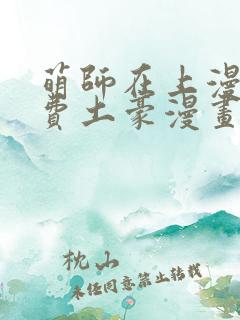 萌師在上漫
費土豪漫畫
枕山
未经同意禁止转载